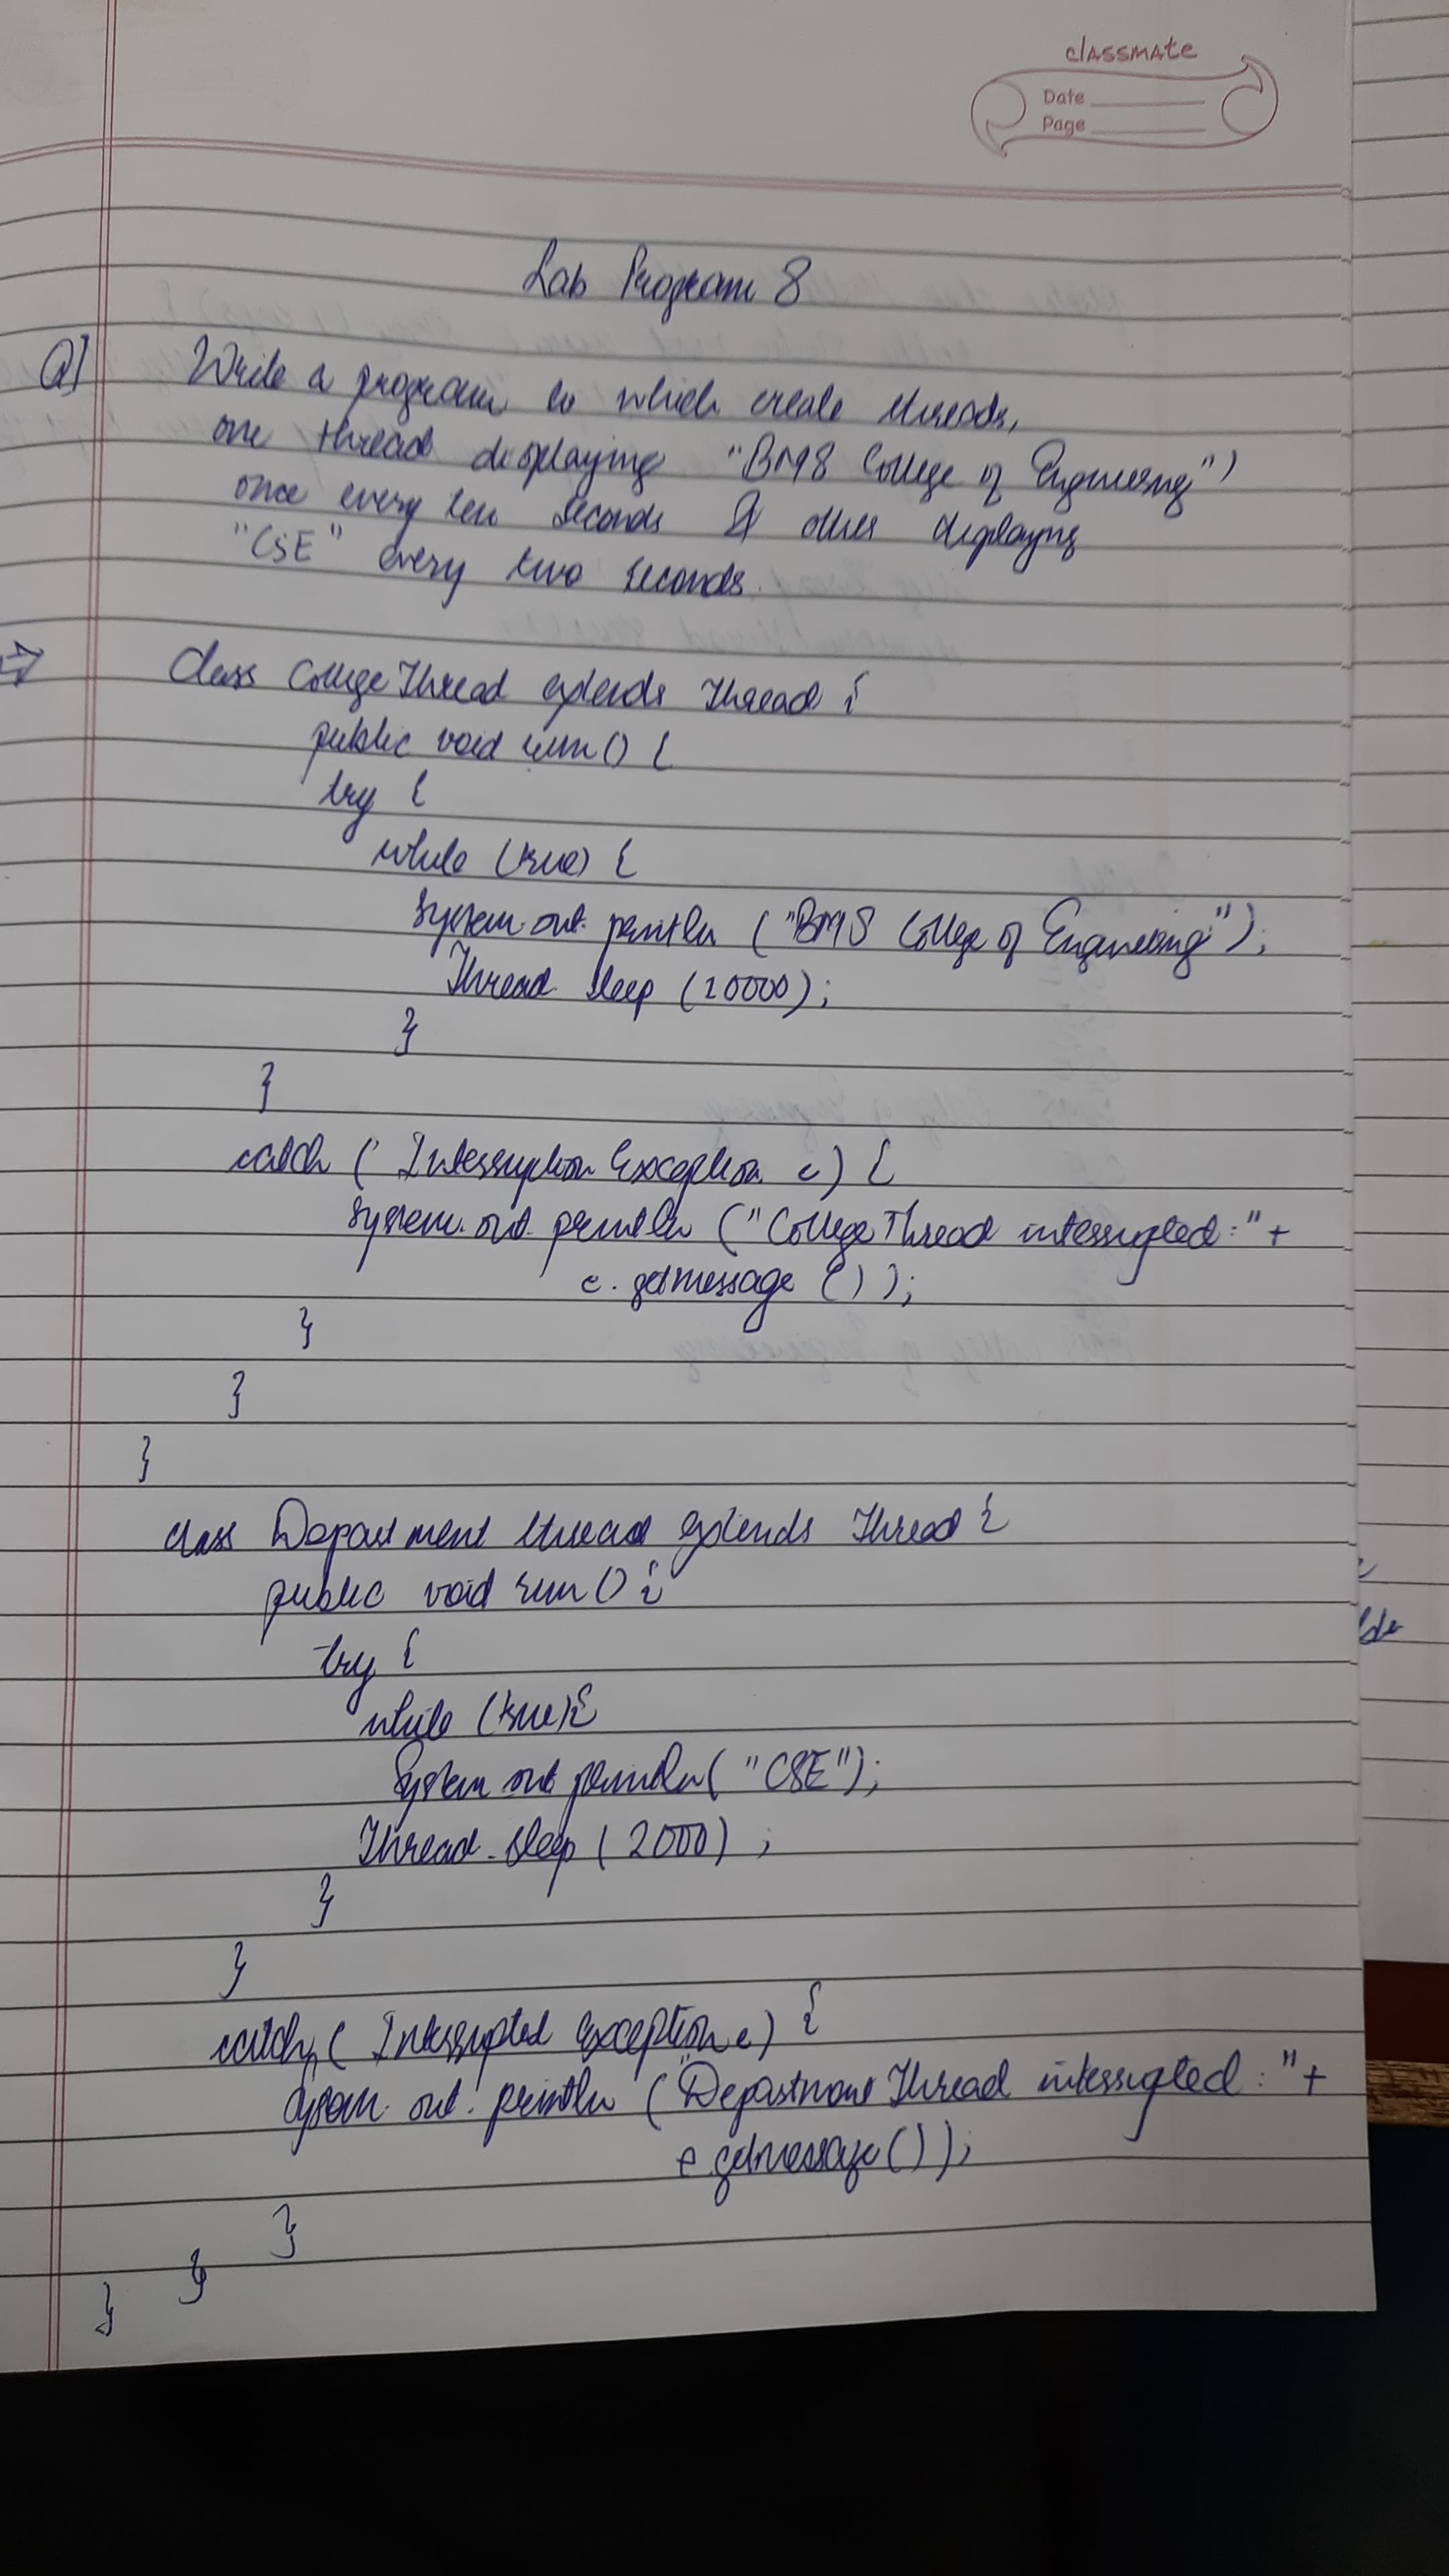 classmate
Date
Page
Lab Program 8
Q] Write a program to which create threads,
one thread displaying "BMS College of Engineering")
once every ten seconds & other displaying
"CSE" every two seconds.
⇒ Class CollegeThread extends Thread {
public void run() {
try {
while (true) {
System.out.println ("BMS College of Engineering");
Thread.sleep (10000);
}
}
catch (InterruptionException e) {
System.out.println ("CollegeThread interrupted:"+
e.getmessage ());
}
}
}
class Department thread extends Thread {
public void run() {
try {
while (true){
System out println( "CSE");
Thread.sleep (2000) ;
}
}
catch ( Interrupted exception e) {
System.out.println ("Department Thread interrupted:"+
e getmessage());
}
}
}